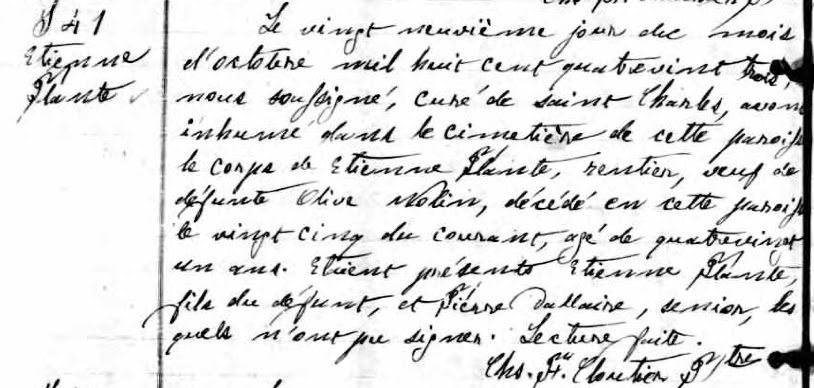 S 41
Etienne
Plante
Le vingt neuvième jour du mois
d'octobre mil huit cent quatrevint trois,
nous soussigné, curé de saint Charles, avons
inhumé dans le cimetière de cette paroisse
le corps de Etienne Plante, rentier, veuf de
défunte Olive Nolin, décédé en cette paroisse
le vingt cinq du courant, agé de quatrevingt
un ans. Etaient présents Etienne Plante,
fils du défunt, et Pierre Dallaire, senior, les
quels n'ont pu signer. Lecture faite.
Chs. F. Cloutier Ptre